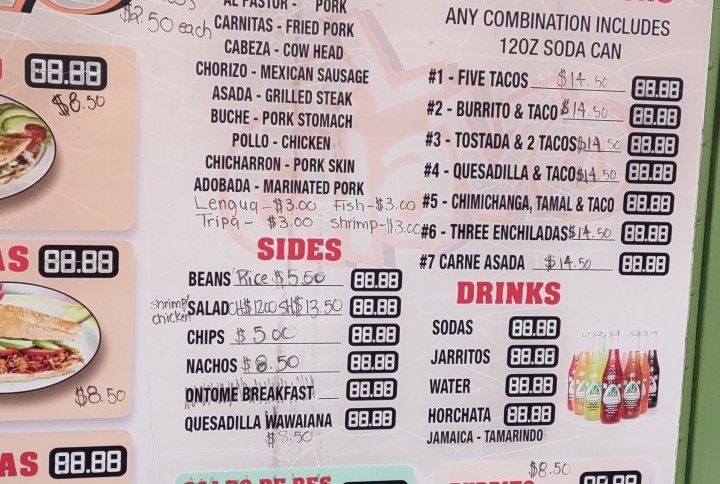 AL PASTOR - PORK
$2.50 each
CARNITAS - FRIED PORK
CABEZA - COW HEAD
CHORIZO - MEXICAN SAUSAGE
ASADA - GRILLED STEAK
BUCHE - PORK STOMACH
POLLO - CHICKEN
CHICHARRON - PORK SKIN
ADOBADA - MARINATED PORK
Lengua - $3.00 Fish - $3.00
Tripa - $3.00 shrimp - $3.00
88.88
$8.50
AS 88.88
$8.50
AS 88.88
SIDES
BEANS Rice $5.50 88.88
shrimp/
chicken
SALAD CH$12.00 SH$13.50 88.88
CHIPS $5.00 88.88
NACHOS $8.50 88.88
ONTOME BREAKFAST 88.88
QUESADILLA WAWAIANA 88.88
$8.50
ANY COMBINATION INCLUDES
12OZ SODA CAN
#1 - FIVE TACOS $14.50 88.88
#2 - BURRITO & TACO $14.50 88.88
#3 - TOSTADA & 2 TACOS $14.50 88.88
#4 - QUESADILLA & TACO $14.50 88.88
#5 - CHIMICHANGA, TAMAL & TACO 88.88
#6 - THREE ENCHILADAS $14.50 88.88
#7 CARNE ASADA $14.50 88.88
DRINKS
SODAS 88.88
JARRITOS 88.88
WATER 88.88
HORCHATA 88.88
JAMAICA - TAMARINDO
$8.50